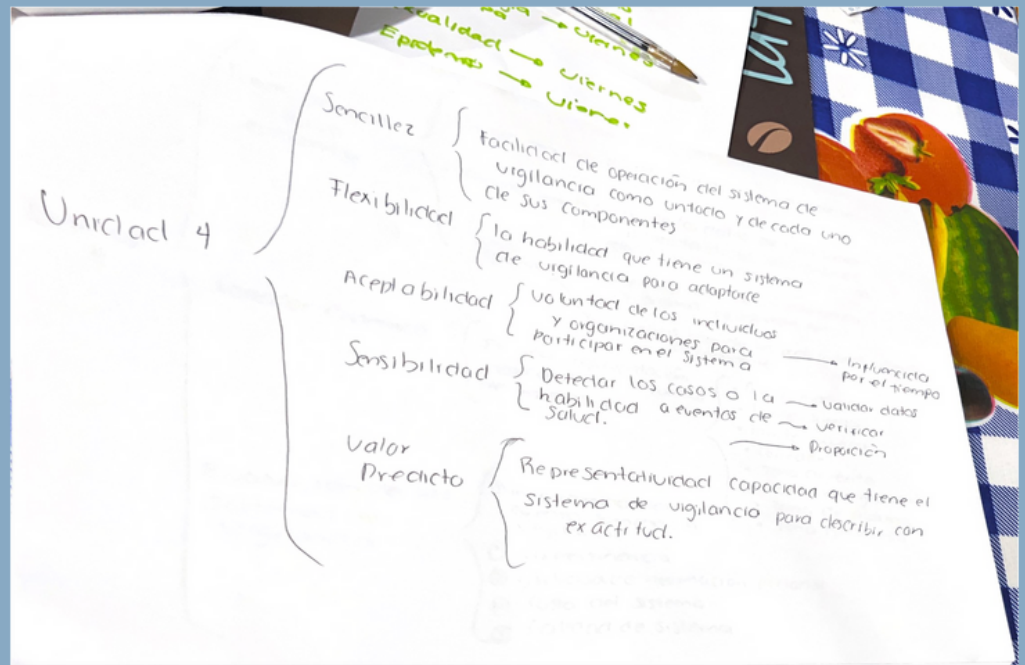 viernes
Viernes
Viernes
Unidad 4
Sencillez
Facilidad de operación del sistema de
vigilancia como untodo y de cada uno
de sus componentes
Flexibilidad
la habilidad que tiene un sistema
de vigilancia para adaptarce
Aceptabilidad
voluntad de los individuos
y organizaciones para
participar en el sistema
Influencida
por el tiempo
Sensibilidad
Detectar los casos o la
habilidad a eventos de
salud.
validar datos
verificar
Proporción
Valor
Predicto
Representatividad capacidad que tiene el
sistema de vigilancia para describir con
exactitud.